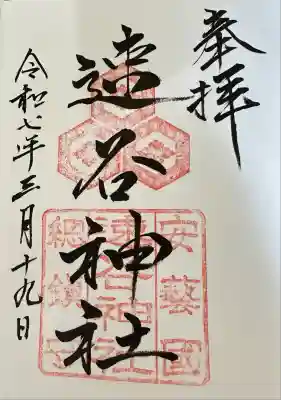 奉拝
速谷神社
安藝國
速谷神社
總鎮守
令和七年三月十九日